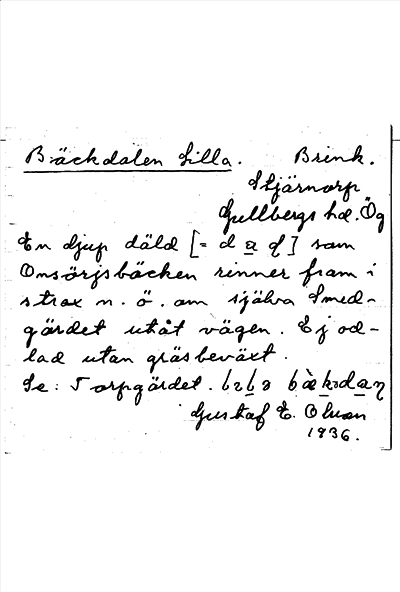 Bäckdalen Lilla. Brink.
Stjärnorp
Gullbergs hd. Ög
En djup däld [= d a ɭ] som
Onsörjsbäcken rinner fram i
strax n. ö. om själva Smed-
gärdet utåt vägen. Ej od-
lad utan gräsbeväxt.
Se: Torpgärdet.
Gustaf E. Olson
1936.